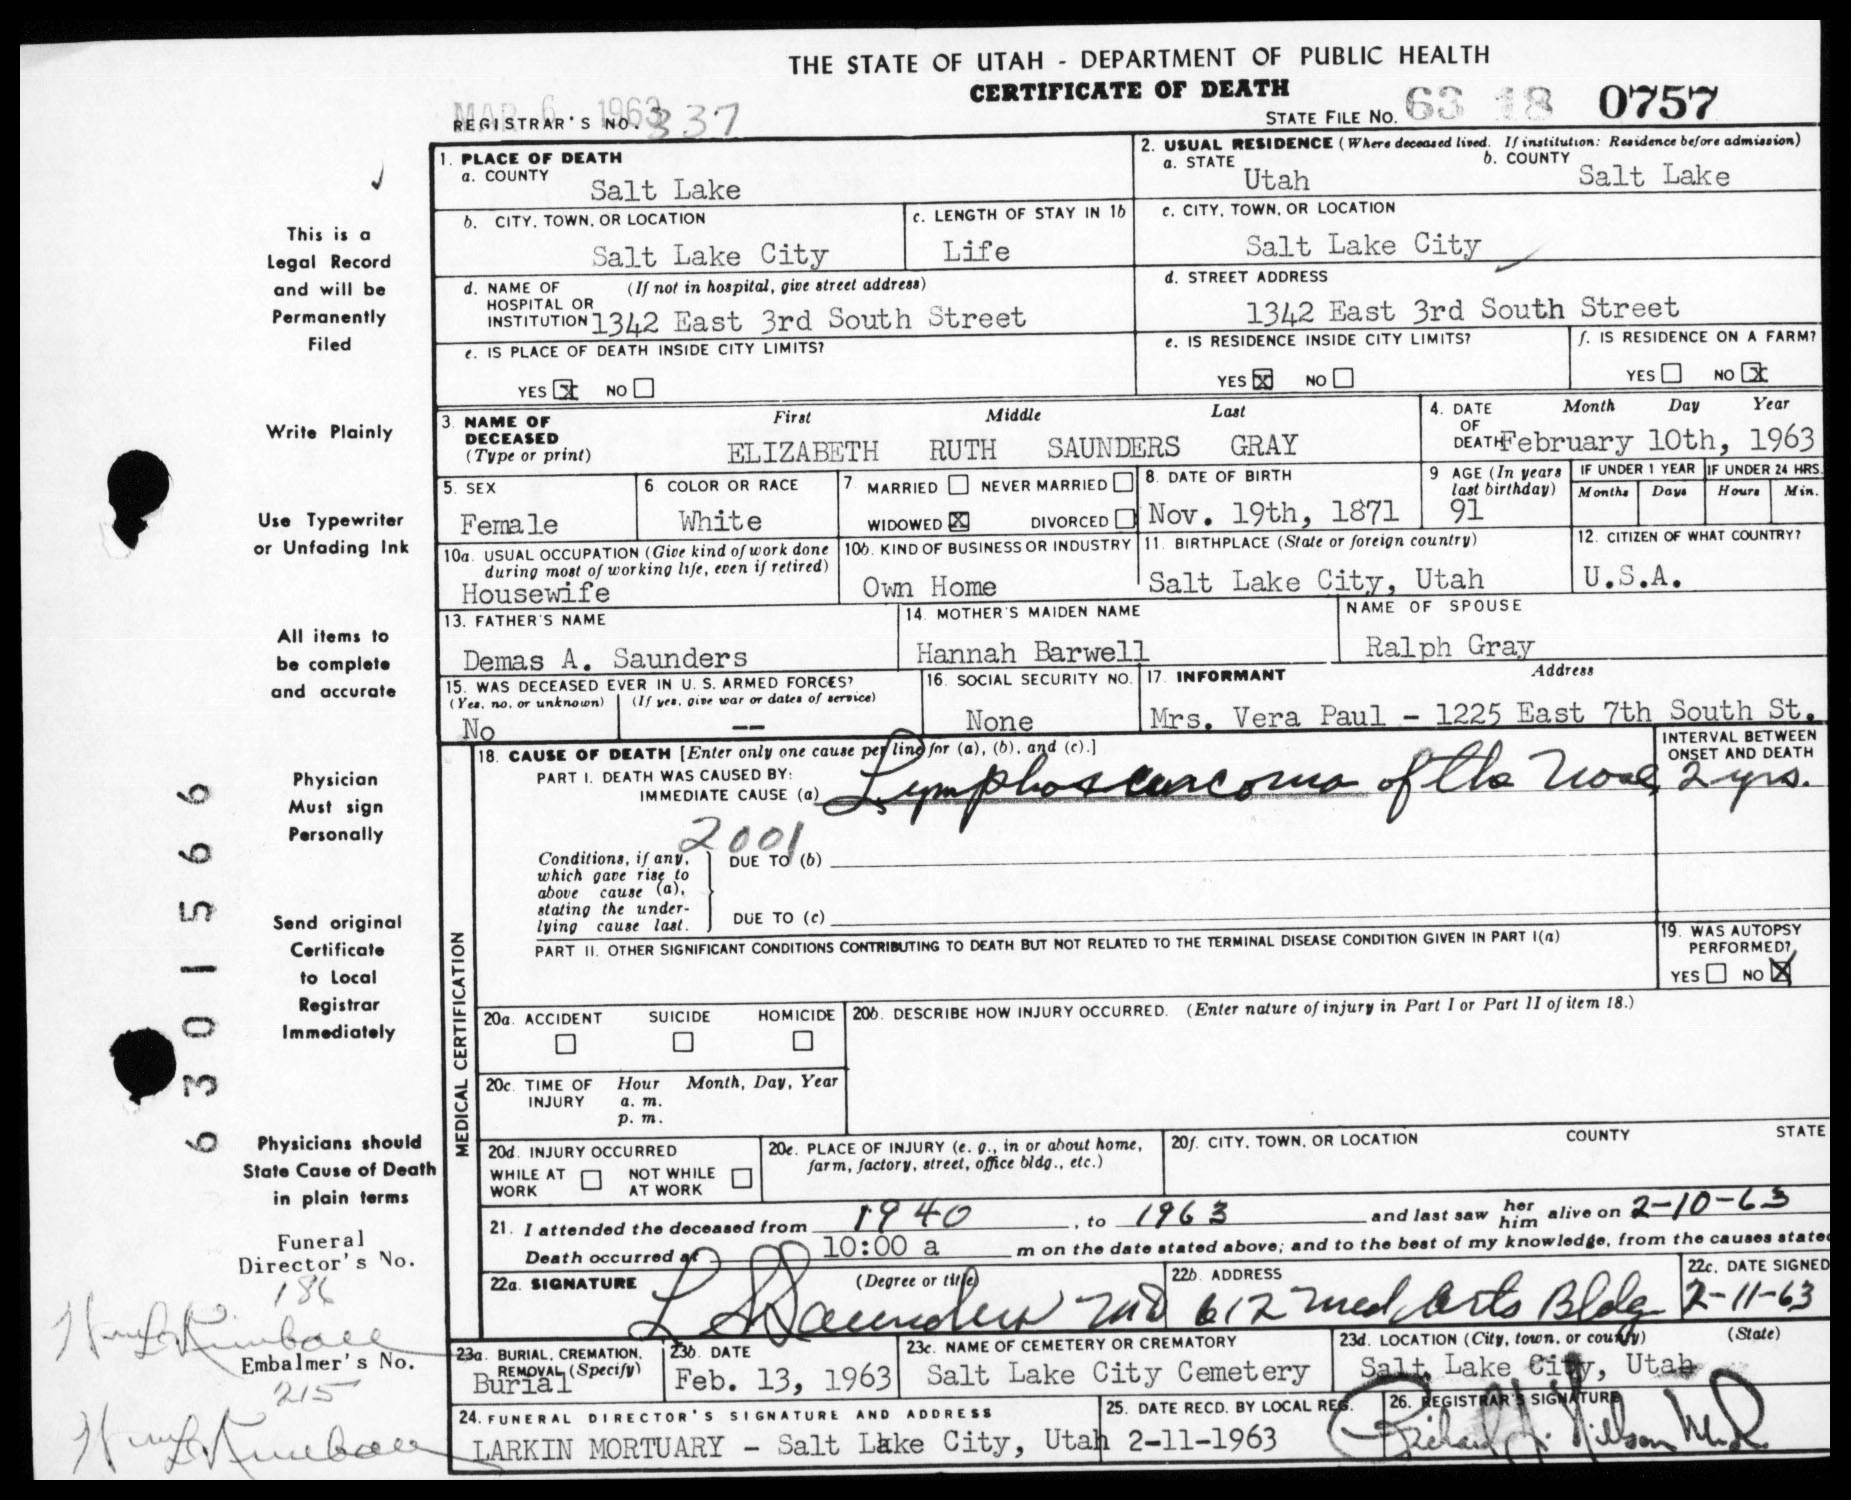 THE STATE OF UTAH - DEPARTMENT OF PUBLIC HEALTH
CERTIFICATE OF DEATH
MAR 6 1963
REGISTRAR'S NO. 337
STATE FILE NO. 63 18 0757
1. PLACE OF DEATH
a. COUNTY
Salt Lake
2. USUAL RESIDENCE (Where deceased lived. If institution: Residence before admission)
a. STATE
Utah
b. COUNTY
Salt Lake
b. CITY, TOWN, OR LOCATION
Salt Lake City
c. LENGTH OF STAY IN 1b
Life
c. CITY, TOWN, OR LOCATION
Salt Lake City
d. NAME OF HOSPITAL OR INSTITUTION (If not in hospital, give street address)
1342 East 3rd South Street
d. STREET ADDRESS
1342 East 3rd South Street
e. IS PLACE OF DEATH INSIDE CITY LIMITS?
YES x NO
e. IS RESIDENCE INSIDE CITY LIMITS?
YES x NO
f. IS RESIDENCE ON A FARM?
YES NO x
3. NAME OF DECEASED (Type or print)
First Middle Last
ELIZABETH RUTH SAUNDERS GRAY
4. DATE OF DEATH
Month Day Year
February 10th, 1963
5. SEX
Female
6 COLOR OR RACE
White
7. MARRIED NEVER MARRIED
WIDOWED x DIVORCED
8. DATE OF BIRTH
Nov. 19th, 1871
9 AGE (In years last birthday)
91
IF UNDER 1 YEAR
Months Days
IF UNDER 24 HRS.
Hours Min.
10a. USUAL OCCUPATION (Give kind of work done during most of working life, even if retired)
Housewife
10b. KIND OF BUSINESS OR INDUSTRY
Own Home
11. BIRTHPLACE (State or foreign country)
Salt Lake City, Utah
12. CITIZEN OF WHAT COUNTRY?
U.S.A.
13. FATHER'S NAME
Demas A. Saunders
14. MOTHER'S MAIDEN NAME
Hannah Barwell
NAME OF SPOUSE
Ralph Gray
15. WAS DECEASED EVER IN U. S. ARMED FORCES?
(Yes, no, or unknown) (If yes, give war or dates of service)
No --
16. SOCIAL SECURITY NO.
None
17. INFORMANT Address
Mrs. Vera Paul - 1225 East 7th South St.
MEDICAL CERTIFICATION
18. CAUSE OF DEATH [Enter only one cause per line for (a), (b), and (c).]
PART I. DEATH WAS CAUSED BY:
IMMEDIATE CAUSE (a) Lymphosarcoma of the Nose
INTERVAL BETWEEN ONSET AND DEATH
2 yrs.
2001
Conditions, if any, which gave rise to above cause (a), stating the underlying cause last.
DUE TO (b)
DUE TO (c)
PART II. OTHER SIGNIFICANT CONDITIONS CONTRIBUTING TO DEATH BUT NOT RELATED TO THE TERMINAL DISEASE CONDITION GIVEN IN PART I(a)
19. WAS AUTOPSY PERFORMED?
YES NO X
20a. ACCIDENT SUICIDE HOMICIDE
20b. DESCRIBE HOW INJURY OCCURRED. (Enter nature of injury in Part I or Part II of item 18.)
20c. TIME OF INJURY
Hour Month, Day, Year
a. m.
p. m.
20d. INJURY OCCURRED
WHILE AT WORK NOT WHILE AT WORK
20e. PLACE OF INJURY (e. g., in or about home, farm, factory, street, office bldg., etc.)
20f. CITY, TOWN, OR LOCATION COUNTY STATE
21. I attended the deceased from 1940, to 1963 and last saw her him alive on 2-10-63
Death occurred at 10:00 a m on the date stated above; and to the best of my knowledge, from the causes stated
22a. SIGNATURE (Degree or title)
L S Saunders MD
22b. ADDRESS
612 Med Arts Bldg
22c. DATE SIGNED
2-11-63
23a. BURIAL, CREMATION, REMOVAL (Specify)
Burial
23b. DATE
Feb. 13, 1963
23c. NAME OF CEMETERY OR CREMATORY
Salt Lake City Cemetery
23d. LOCATION (City, town, or county) (State)
Salt Lake City, Utah
24. FUNERAL DIRECTOR'S SIGNATURE AND ADDRESS
LARKIN MORTUARY - Salt Lake City, Utah
25. DATE RECD. BY LOCAL REG.
2-11-1963
26. REGISTRAR'S SIGNATURE
Richard H. Nilson M.D.
This is a
Legal Record
and will be
Permanently
Filed
Write Plainly
Use Typewriter
or Unfading Ink
All items to
be complete
and accurate
Physician
Must sign
Personally
Send original
Certificate
to Local
Registrar
Immediately
Physicians should
State Cause of Death
in plain terms
Funeral
Director's No.
186
Embalmer's No.
215
6301566